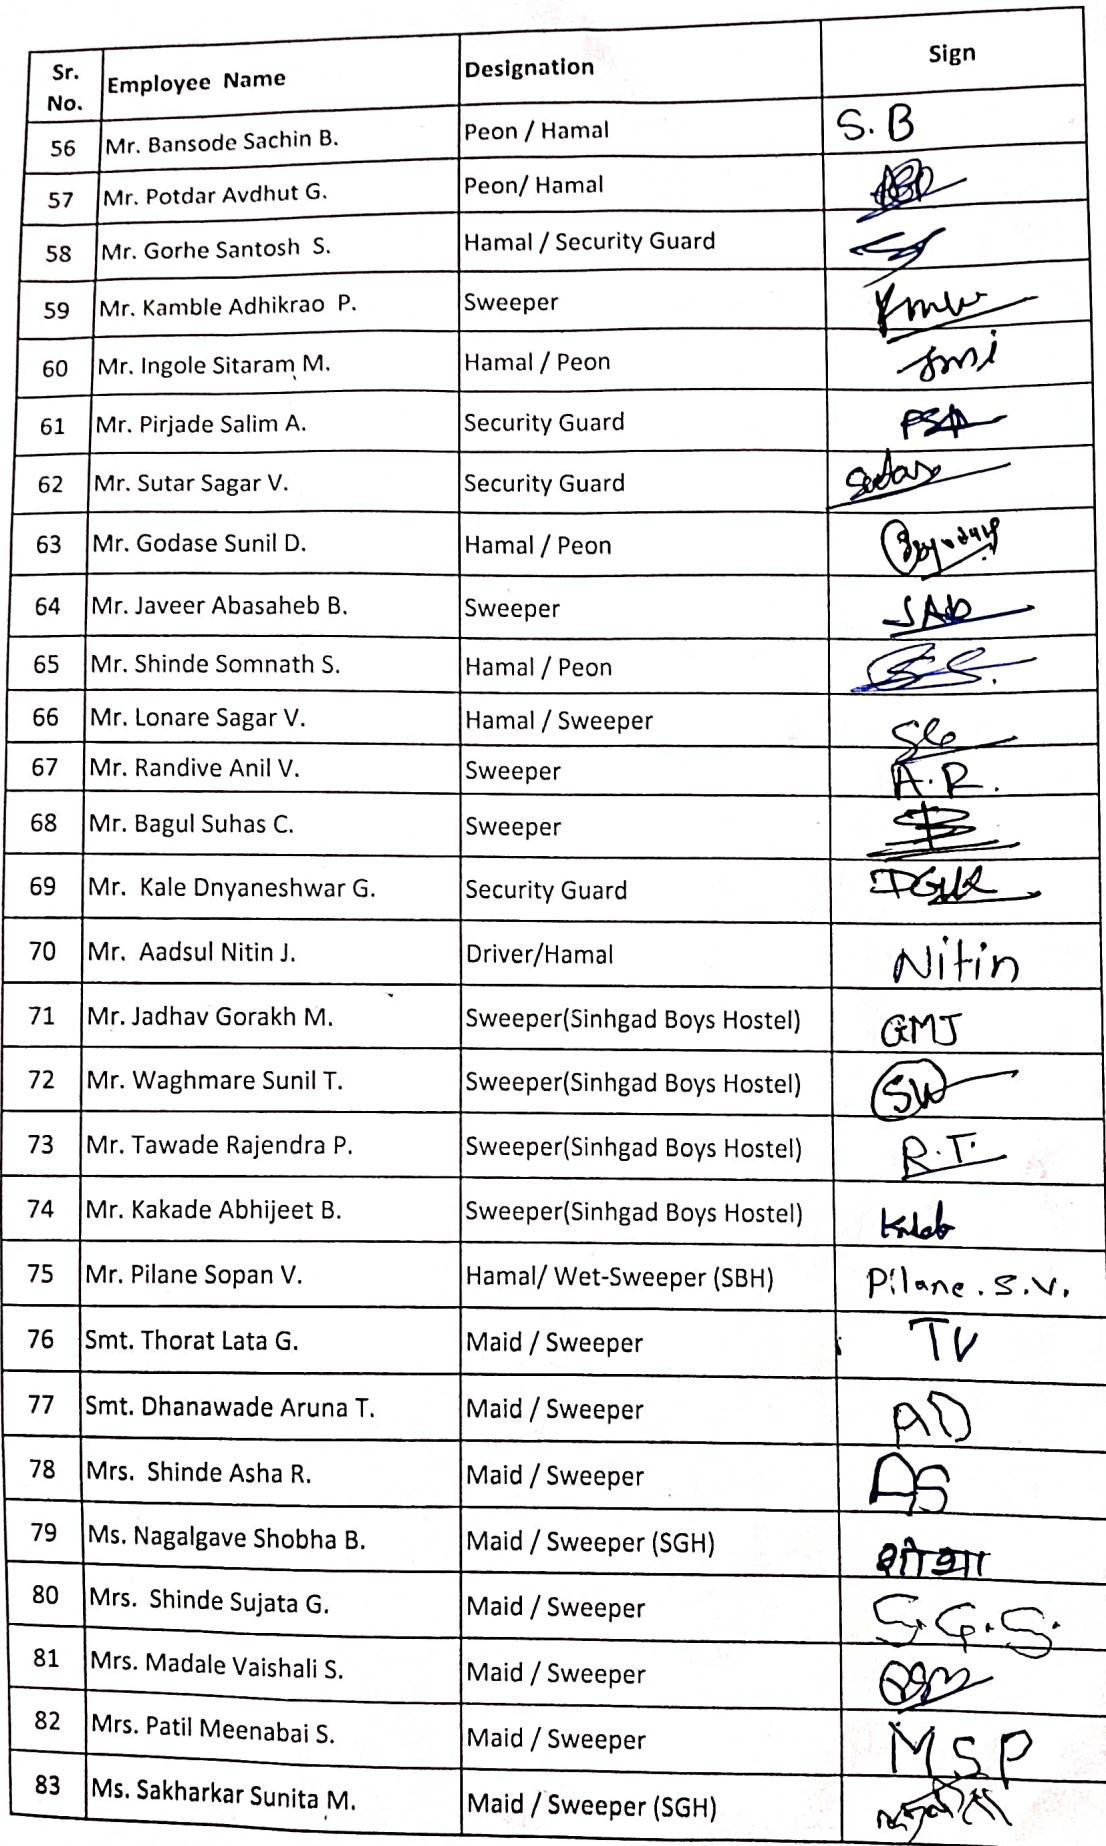 Sr. No. Employee Name Designation Sign
56 Mr. Bansode Sachin B. Peon / Hamal S. B
57 Mr. Potdar Avdhut G. Peon/ Hamal
58 Mr. Gorhe Santosh S. Hamal / Security Guard
59 Mr. Kamble Adhikrao P. Sweeper
60 Mr. Ingole Sitaram M. Hamal / Peon
61 Mr. Pirjade Salim A. Security Guard
62 Mr. Sutar Sagar V. Security Guard Sutar
63 Mr. Godase Sunil D. Hamal / Peon
64 Mr. Javeer Abasaheb B. Sweeper
65 Mr. Shinde Somnath S. Hamal / Peon
66 Mr. Lonare Sagar V. Hamal / Sweeper
67 Mr. Randive Anil V. Sweeper A. R.
68 Mr. Bagul Suhas C. Sweeper
69 Mr. Kale Dnyaneshwar G. Security Guard
70 Mr. Aadsul Nitin J. Driver/Hamal Nitin
71 Mr. Jadhav Gorakh M. Sweeper(Sinhgad Boys Hostel) GMJ
72 Mr. Waghmare Sunil T. Sweeper(Sinhgad Boys Hostel) SW
73 Mr. Tawade Rajendra P. Sweeper(Sinhgad Boys Hostel) R.T.
74 Mr. Kakade Abhijeet B. Sweeper(Sinhgad Boys Hostel)
75 Mr. Pilane Sopan V. Hamal/ Wet-Sweeper (SBH) Pilane. S.V.
76 Smt. Thorat Lata G. Maid / Sweeper TV
77 Smt. Dhanawade Aruna T. Maid / Sweeper AD
78 Mrs. Shinde Asha R. Maid / Sweeper AS
79 Ms. Nagalgave Shobha B. Maid / Sweeper (SGH) शोभा
80 Mrs. Shinde Sujata G. Maid / Sweeper S.G.S.
81 Mrs. Madale Vaishali S. Maid / Sweeper
82 Mrs. Patil Meenabai S. Maid / Sweeper MSP
83 Ms. Sakharkar Sunita M. Maid / Sweeper (SGH)